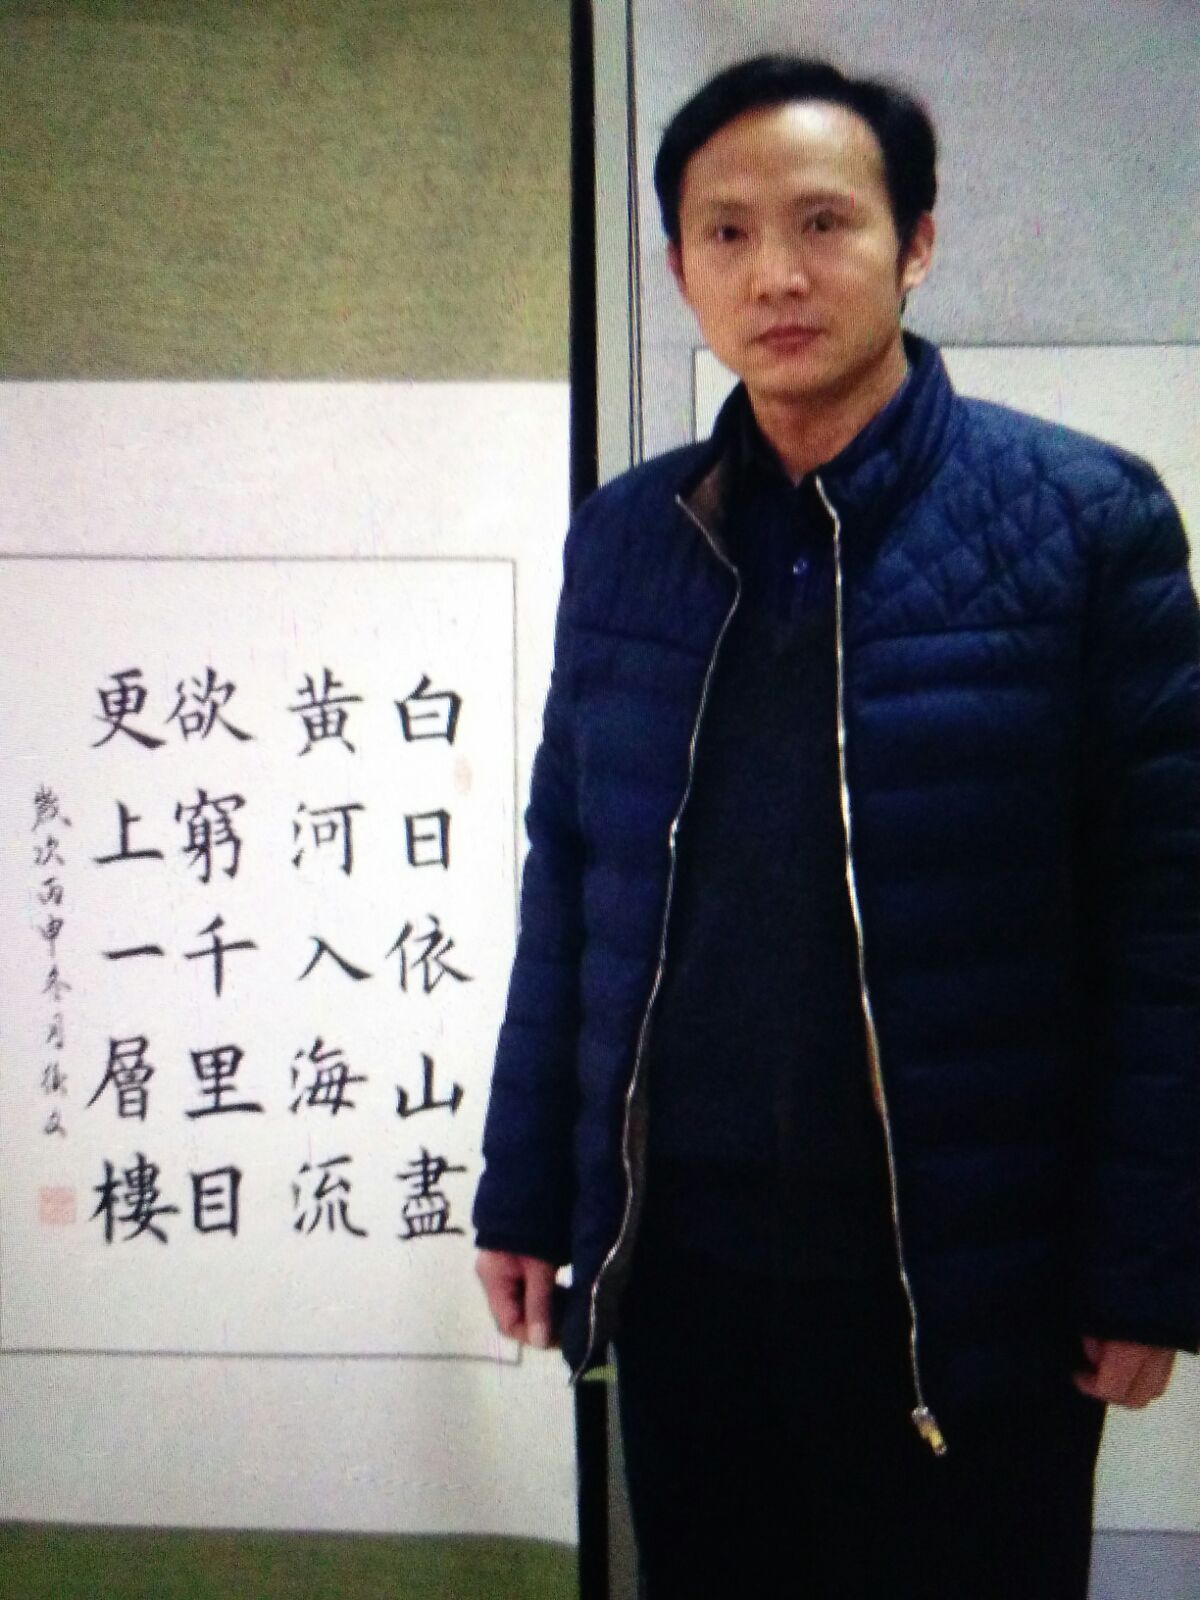 白日依山盡
黄河入海流
欲窮千里目
更上一層樓
歲次丙申冬月